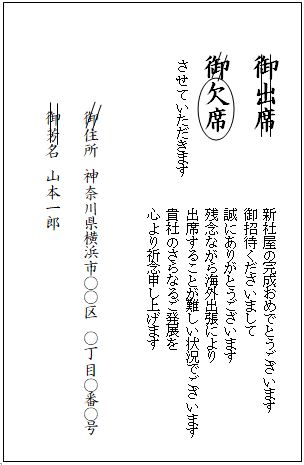 御出席
御欠席
させていただきます
新社屋の完成おめでとうございます
御招待くださいまして
誠にありがとうございます
残念ながら海外出張により
出席することが難しい状況でございます
貴社のさらなるご発展を
心より祈念申し上げます
御住所 神奈川県横浜市〇〇区 〇丁目〇番〇号
御芳名 山本一郎